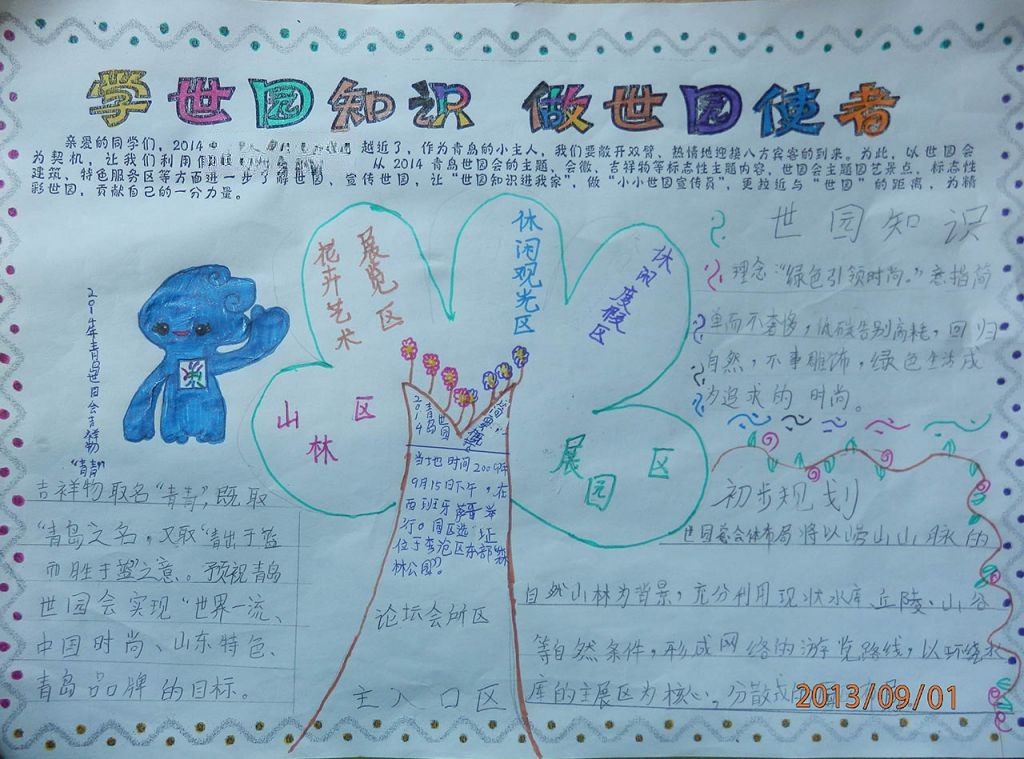 学世园知识 做世园使者
亲爱的同学们，2014 越近了，作为青岛的小主人，我们要敞开双臂，热情地迎接八方宾客的到来。为此，以世园会
为契机，让我们利用 从2014青岛世园会的主题、会徽、吉祥物等标志性主题内容，世园会主题园艺景点，标志性
建筑、特色服务区等方面进一步了解世园、宣传世园，让“世园知识进我家”，做“小小世园宣传员”，更拉近与“世园”的距离，为精
彩世园，贡献自己的一分力量。
2014年青岛世园会吉祥物
“青青”
吉祥物取名“青青”，既取
“青岛之名，又取“青出于蓝
而胜于蓝”之意。预祝青岛
世园会实现“世界一流、
中国时尚、山东特色、
青岛品牌的目标。
花卉艺术
展览区
休闲观光区
休闲度假区
山林区
展园区
2014
青岛世园
当地时间2009年
9月15日下午，在
西班牙萨哥举
行。园区选址
位于李沧区东部森
林公园”。
论坛会所区
主入口区
世园知识
理念“绿色引领时尚。”意指简
单而不奢侈，低碳告别高耗，回归
自然，不事雕饰，绿色生活成
为追求的时尚。
初步规划
世园会体布局将以崂山山脉的
自然山林为背景，充分利用现状水库、丘陵、山谷
等自然条件，形成网络的游览路线，以环绕水
库的主展区为核心，分散
2013/09/01